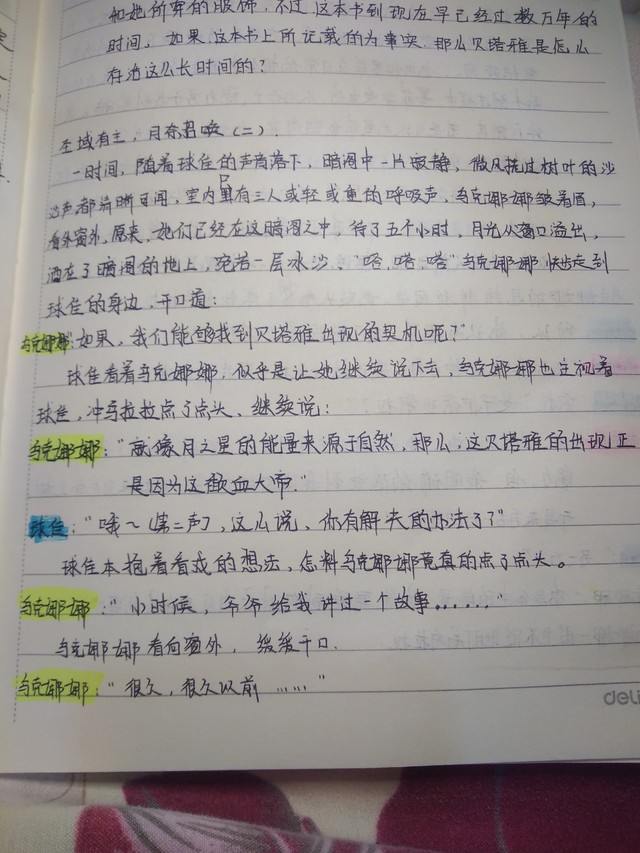 如她所穿的服饰，不过这本书到现在早已经过数万年的
时间，如果这本书上所记载的为事实，那么贝塔雅是怎么
存活这么长时间的？
圣域有主，月召唤（二）．
一时间，随着球佳的声音落下，暗阁中一片寂静，微风抚过树叶的沙
沙声都清晰可闻，室内只有三人或轻或重的呼吸声，乌克娜娜皱着眉，
看外窗外，原来，她们已经在这暗阁之中，待了五个小时，月光从窗口溢出，
洒在了暗阁的地上，宛若一层冰沙，“嗒，嗒，嗒”乌克娜娜快步走到
球佳的身边，开口道：
乌克娜娜：“如果，我们能够找到贝塔雅出现的契机呢？”
球佳看着乌克娜娜，似乎是让她继续说下去，乌克娜娜也注视着
球佳，冲马拉拉点了点头、继续说：
乌克娜娜：“就像月之星的能量来源于自然，那么，这贝塔雅的出现正
是因为这血大帝．”
球佳：“哦～（第二声），这么说，你有解决的办法了？”
球佳本抱着看戏的想法，怎料乌克娜娜竟真的点了点头。
乌克娜娜：“小时候，爷爷给我讲过一个故事……”
乌克娜娜看向窗外，缓缓开口．
乌克娜娜：“很久，很久以前……”
deli